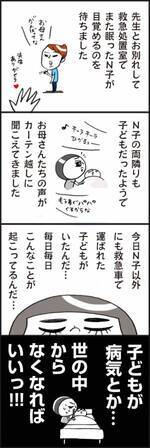 先生とお別れして
救急処置室で
また眠ったN子が
目覚めるのを
待ちました
お母さん
N子の両隣りも
子どもだったようで
お母さんたちの声が
カーテン越しに
聞こえてきました
今日N子以外
にも救急車で
運ばれた
子どもが
いたんだ…
毎日毎日
こんなことが
起こってるんだ…
子どもが
病気とか…
世の中
から
なくなれば
いいっ!!!